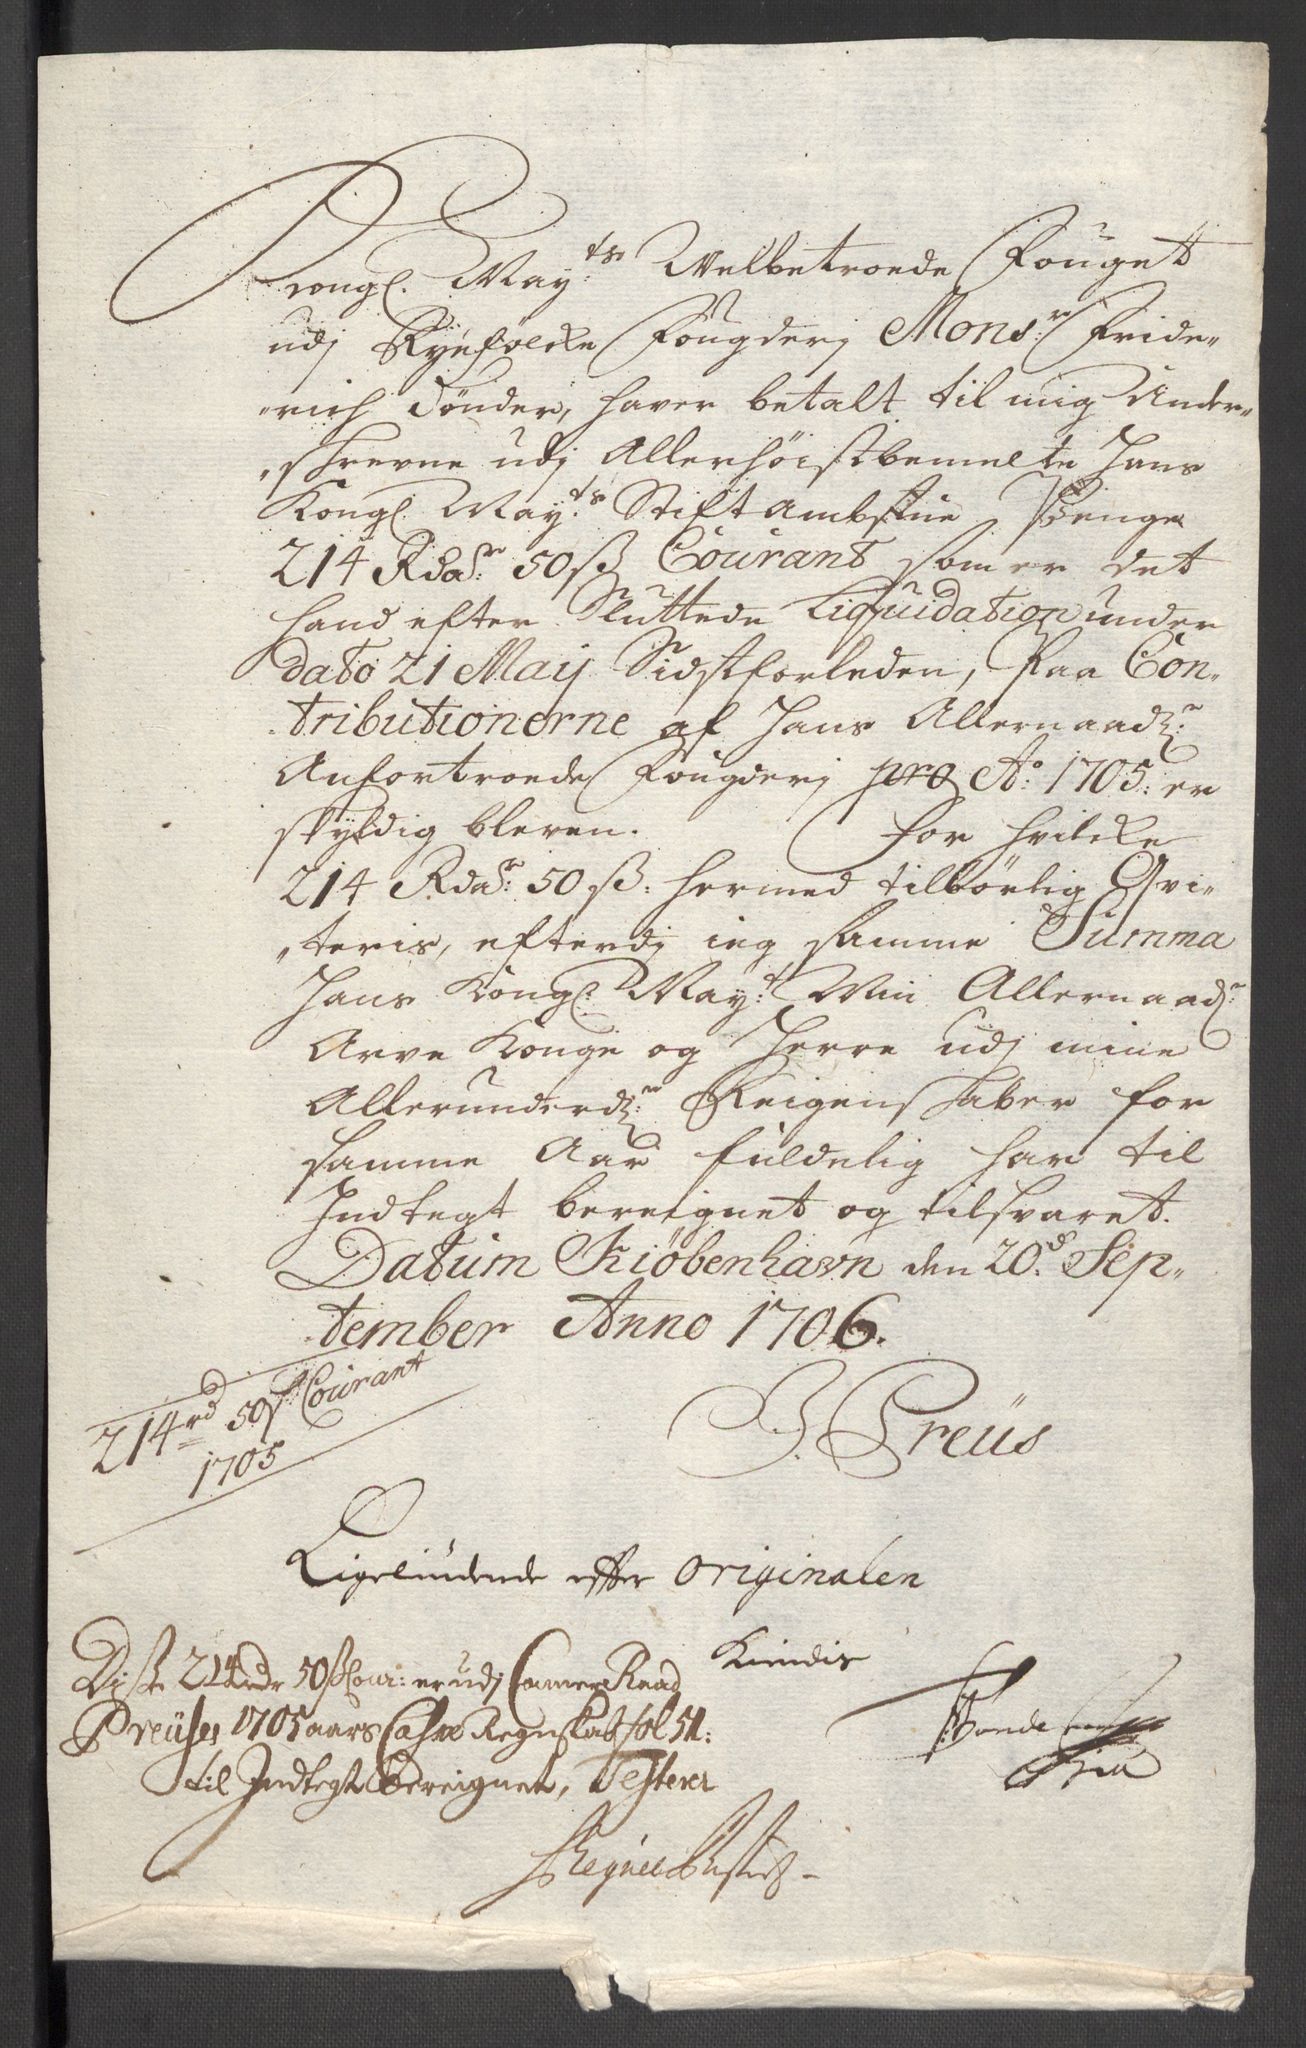 Kongl. May:ts Welbetroede Fouget
udj Ryefölcke Fougderj Monsr: Fride-
rich Tönder, haver betalt til mig Under-
skrevne udj Allerhöistbemelte Hans
Kongl May:ts Stiftambstue Penge
214 Rdar: 50 ß Courant som er det
hand efter Sluttede Liquidation under
dato 21 Maij Sidstforleden, paa Con-
tributionerne af Hans Allernaadr:
Anfortroede Fougderj pro Ao: 1705: er
skyldig bleven. For hvilcke
214 Rdar: 50 ß: hermed tilbörlig Qvi-
teris, efterdj ieg samme Summa
Hans Kongl: May:t Min Allernaadr:
Arve Konge og Herre udj mine
Allerunderdr: Reigenskaber for
samme Aar fuldelig har til
Indtegt bereignet og tilsvaret.
Datum Kiöbenhavn den 20de Sep-
tember Anno 1706.
214rd 50ß Courant
1705
J Preüs
Ligelüdende effter originalen
Kiendis
Disse 214rdr 50ß Cour: er udj Camer Raad
Preüses 1705 aars Cassa Regnskab fol 51:
til Indtegt bereignet, Testerer